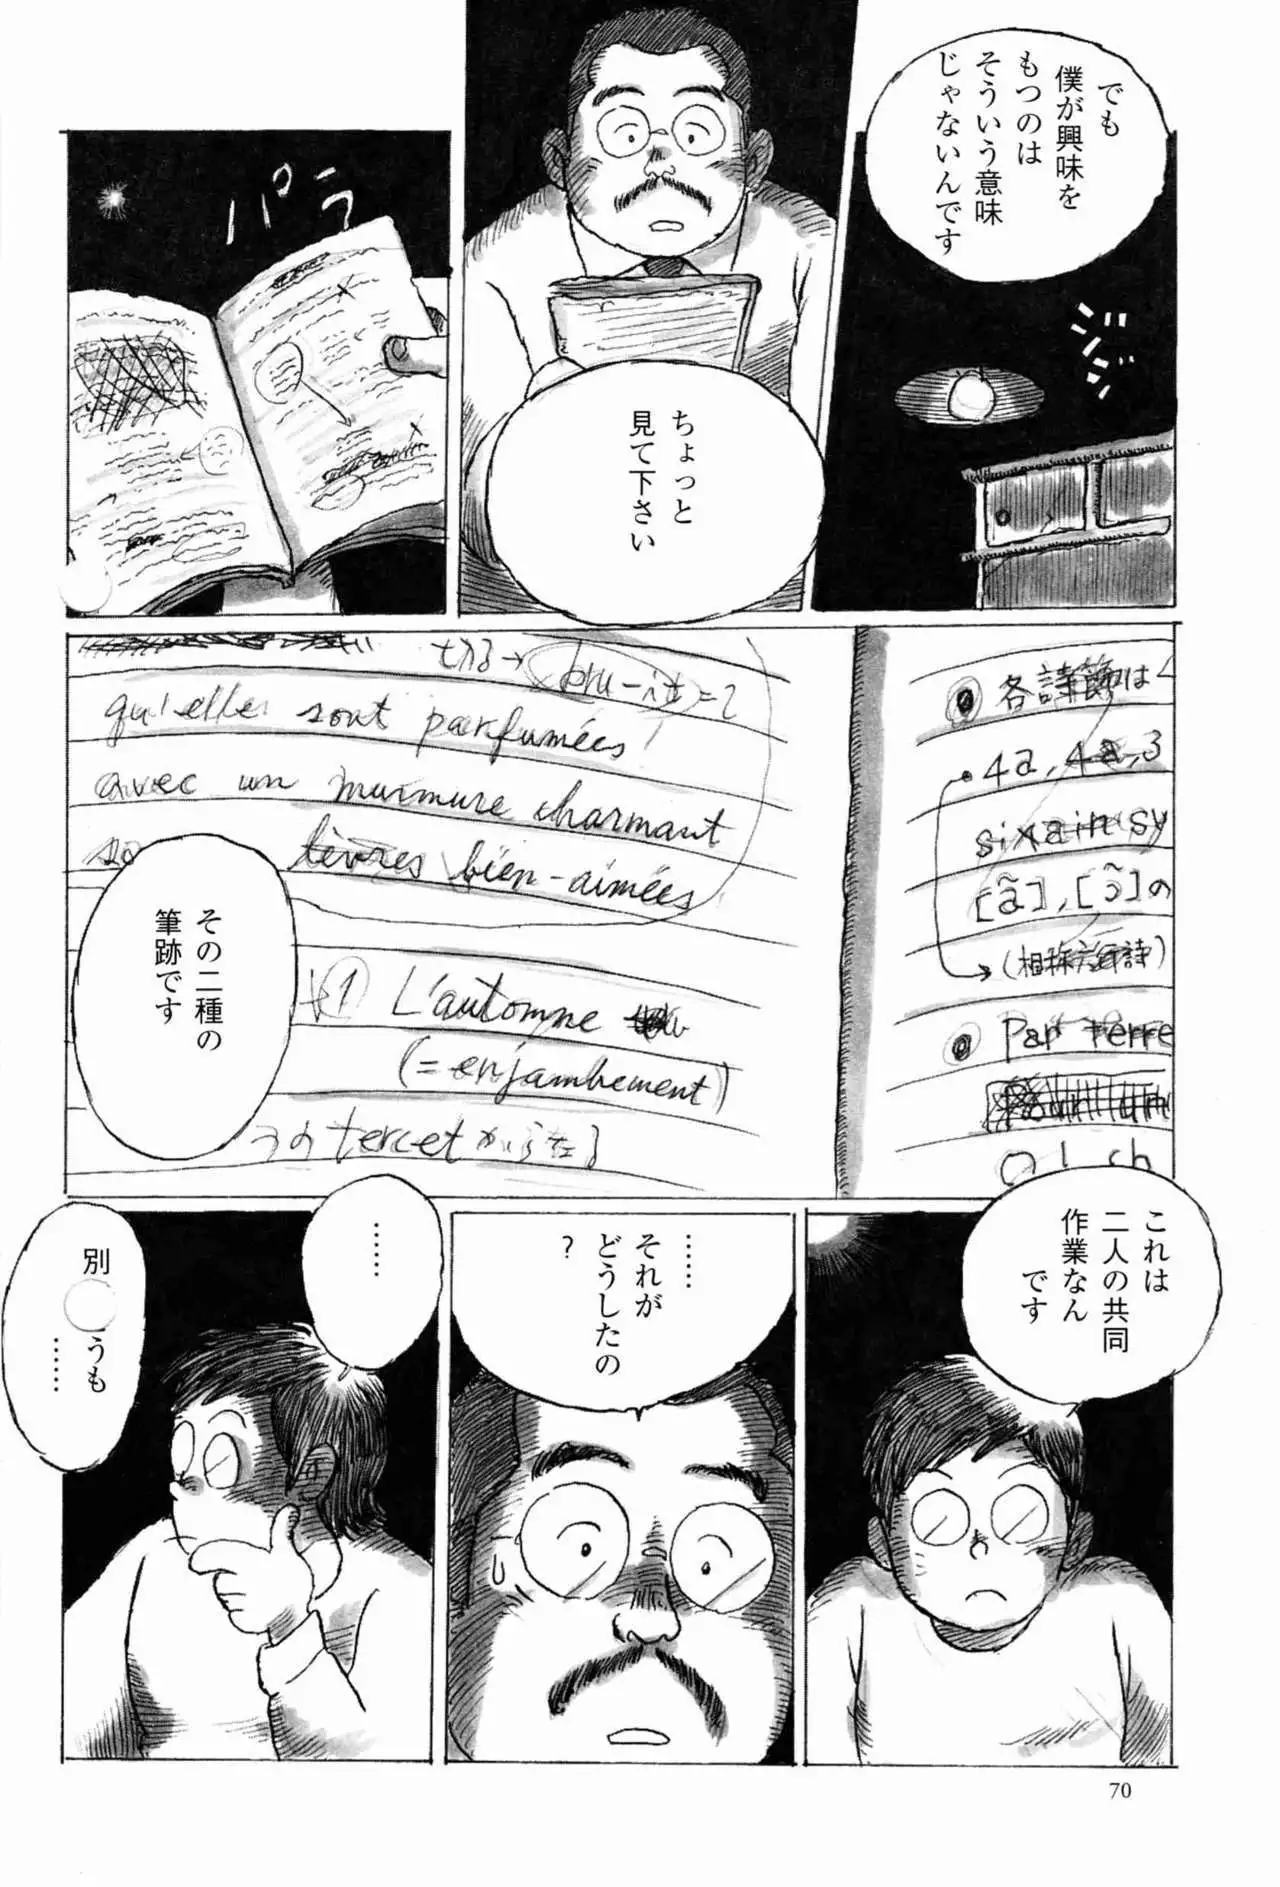 でも
僕が興味を
もつのは
そういう意味
じゃないんです
ジジ
ちょっと
見て下さい
パラ
各詩節は
4a, 4a, 3
sixain sy
[ã], [ɔ̃]の
Par terre
bru-it=2
qu'elles sont parfumées
avec un murmure charmant
lèvres bien-aimées
1 L'automne
(=enjambement)
tercet
その二種の
筆跡です
これは
二人の共同
作業なん
です
……
それが
どうしたの
？
……
別
うも
……
70